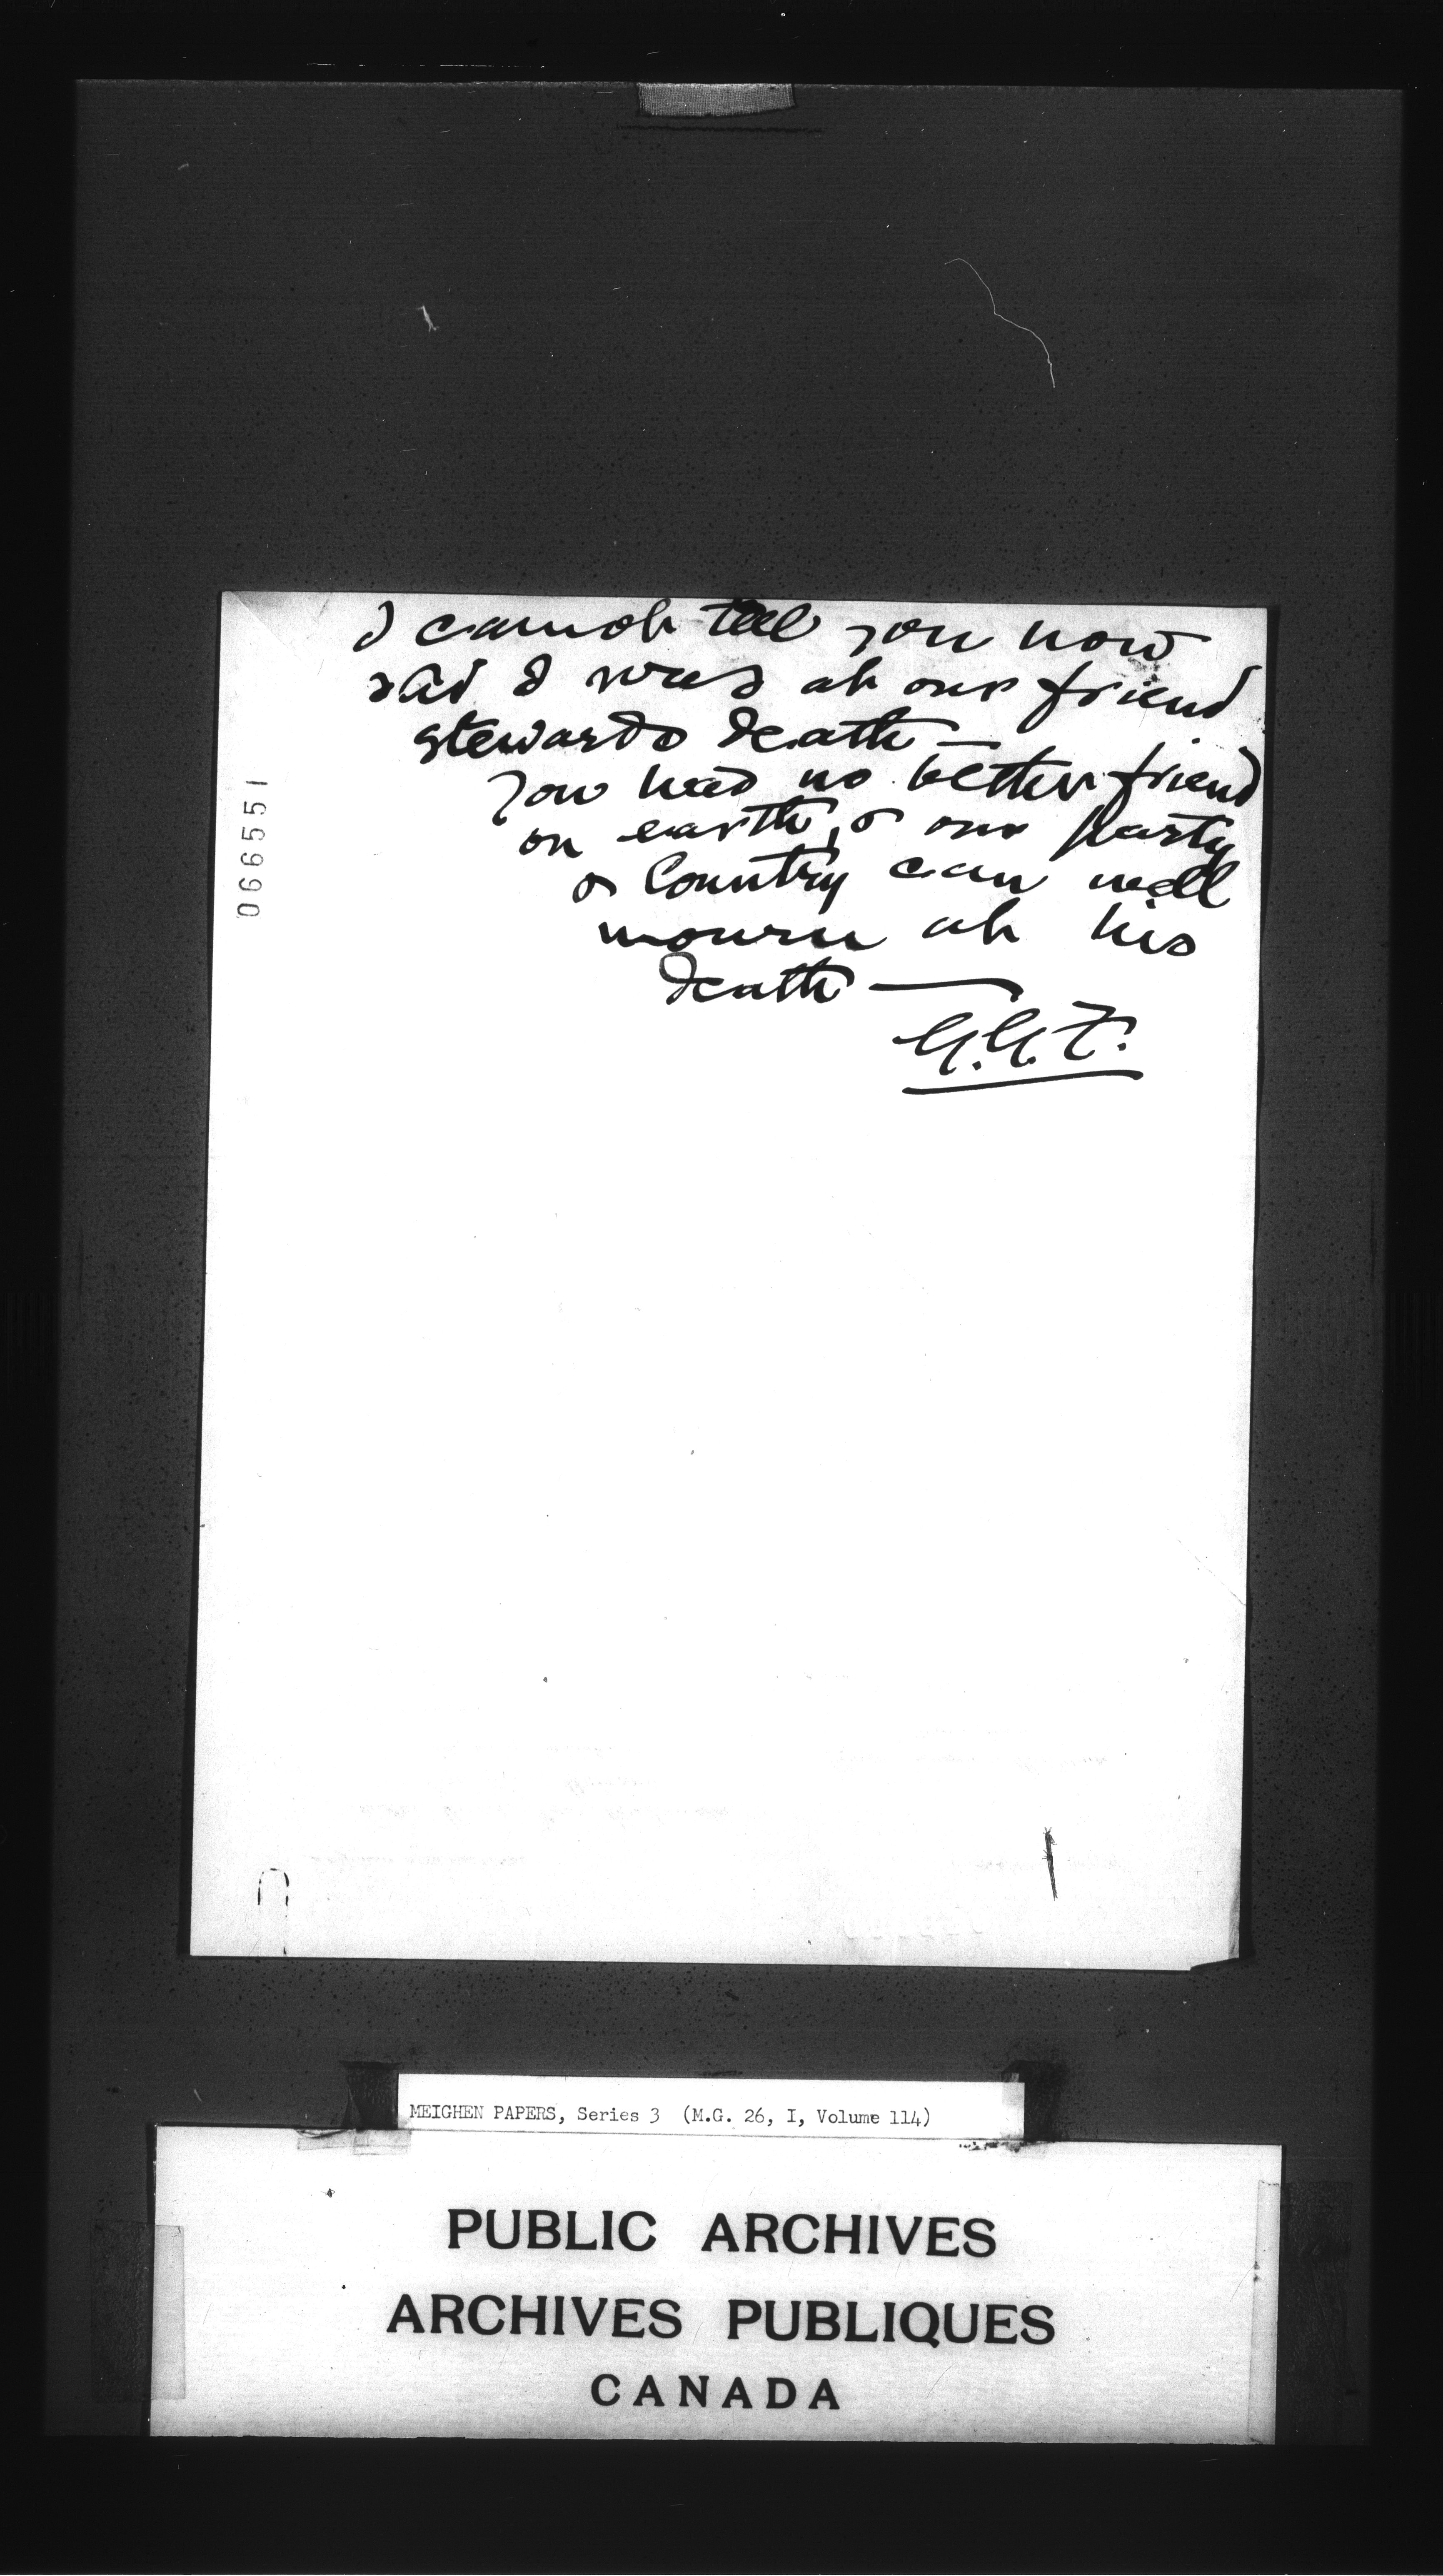 I cannot tell you how
sad I was at our friend
Stewards death —
You had no better friend
on earth, & our party
& Country can well
mourn at his
death —
G.G.F.
066551
MEIGHEN PAPERS, Series 3 (M.G. 26, I, Volume 114)
PUBLIC ARCHIVES
ARCHIVES PUBLIQUES
CANADA